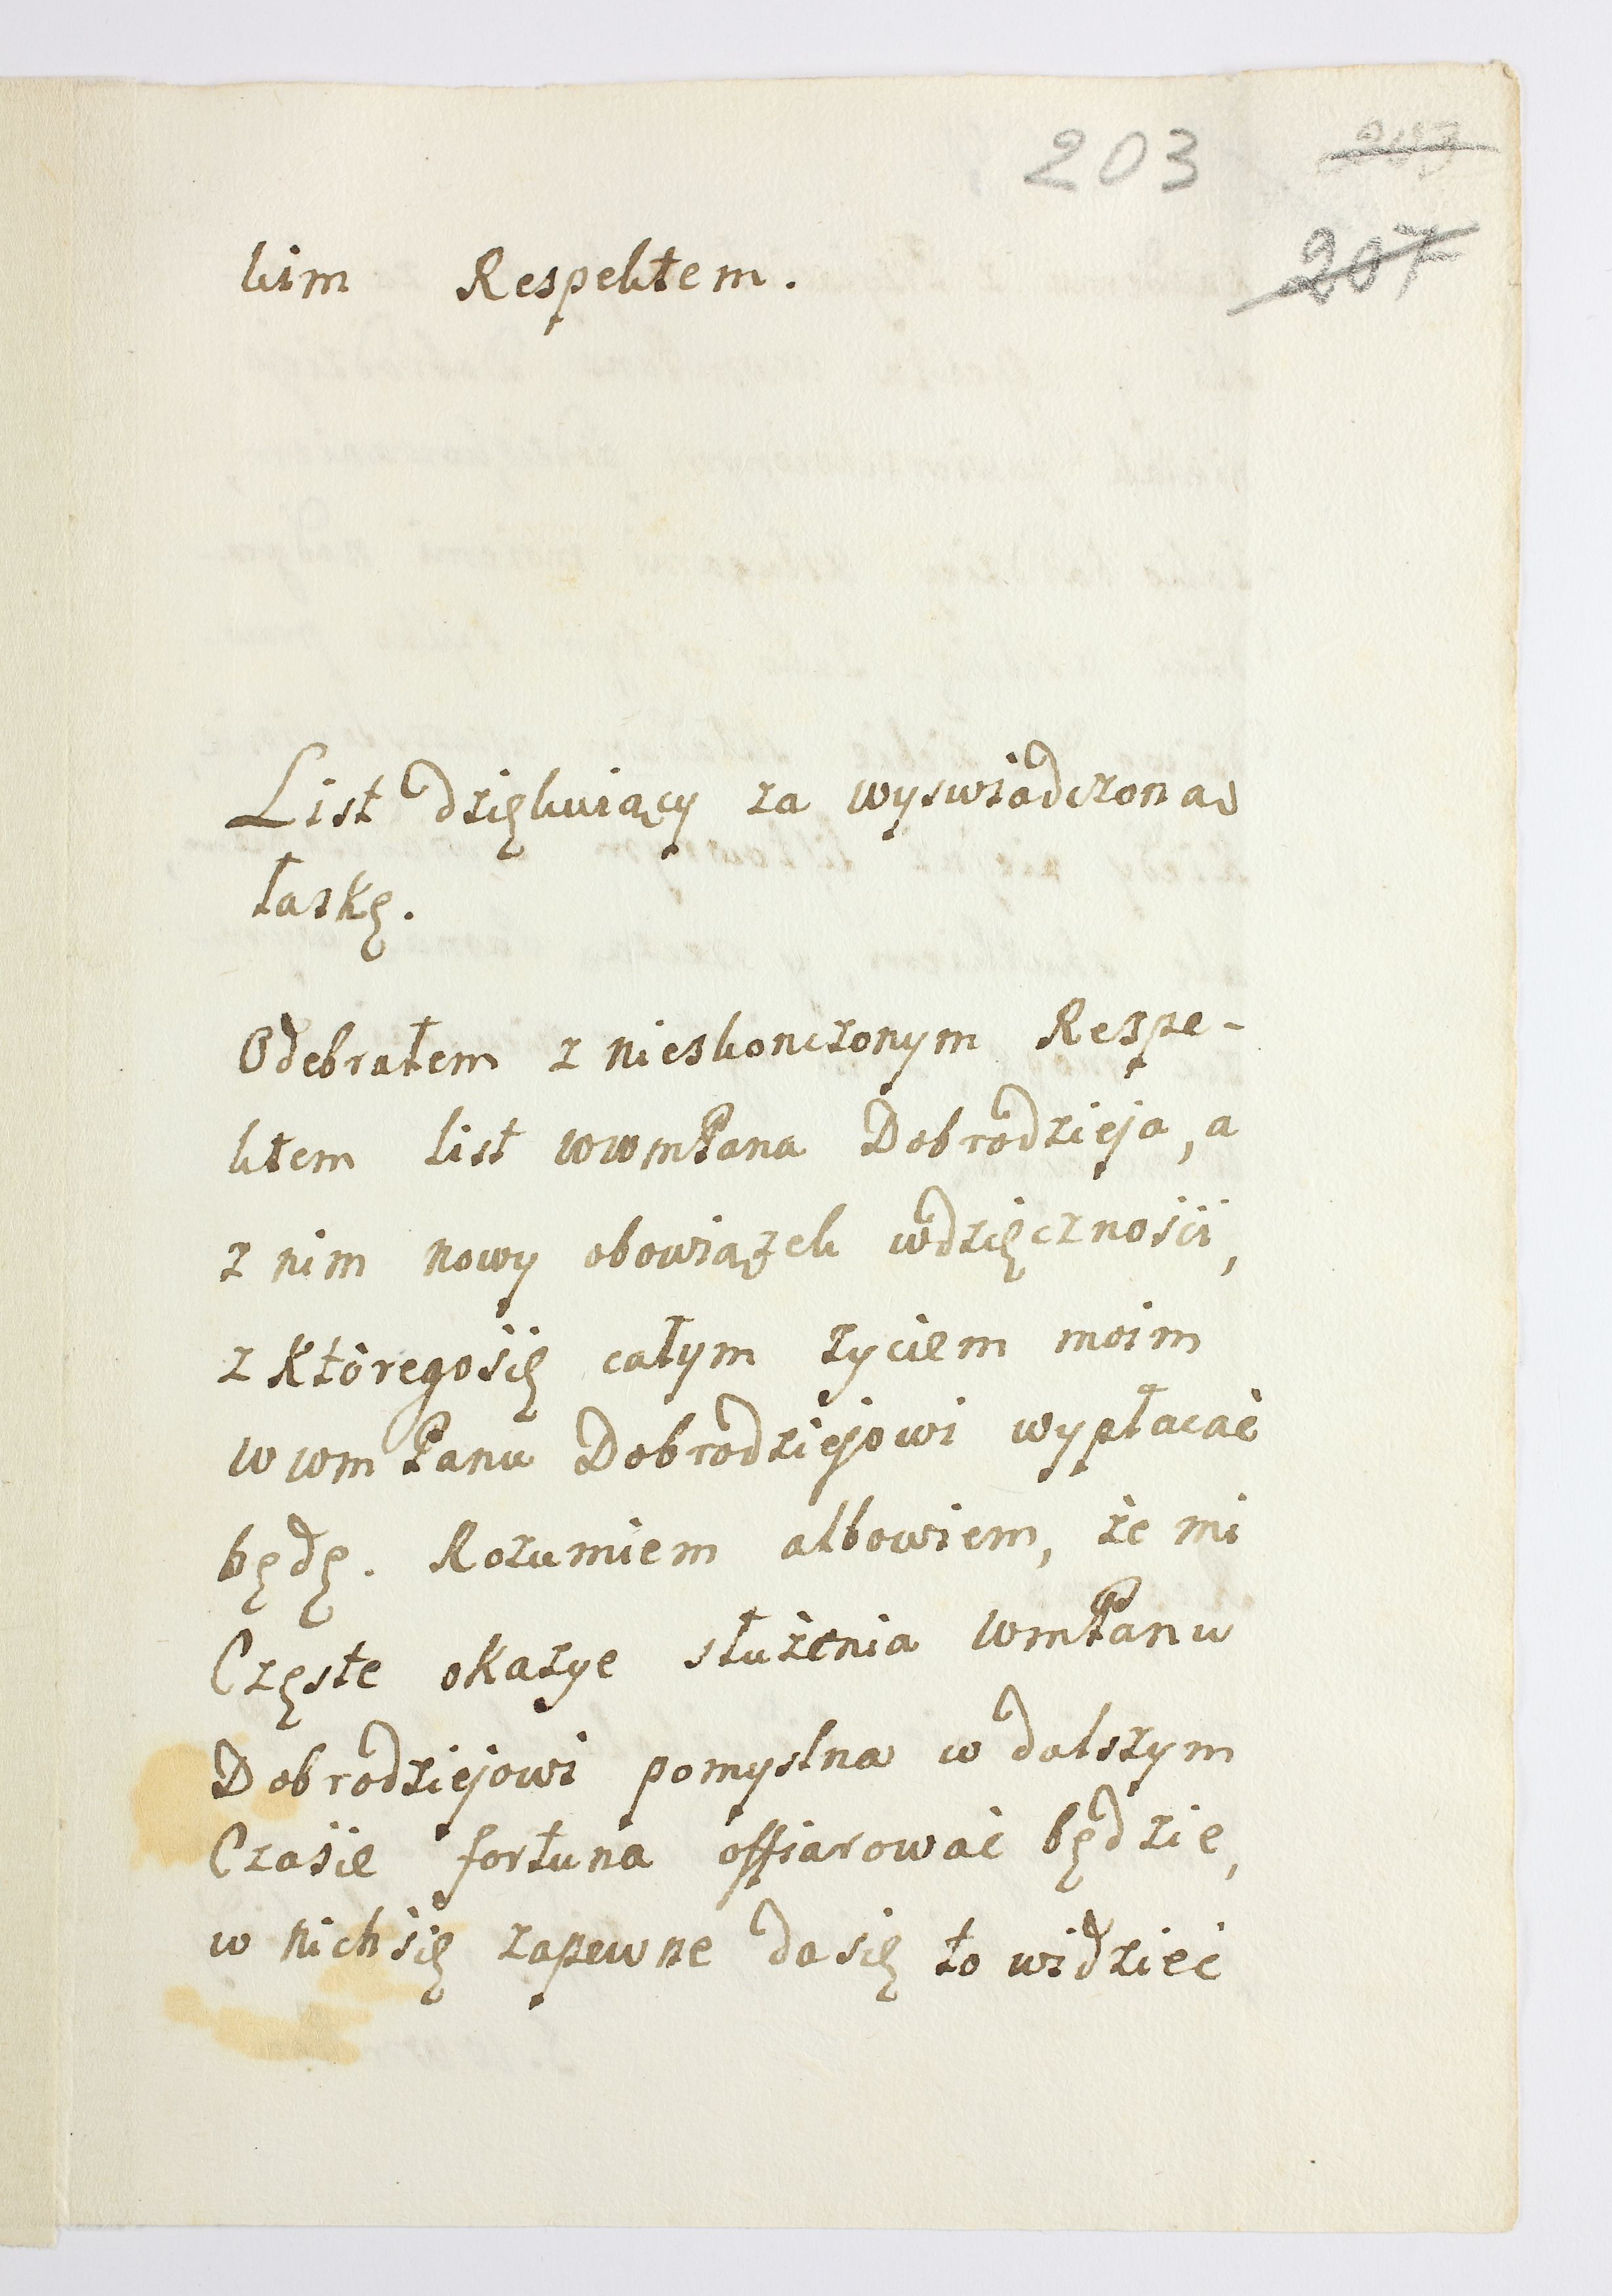 203
207
207
kim Respektem.
List dziękuiący za wyswiadczoną
łaskę.
Odebrałem z nieskonczonym Respe-
ktem list wwmPana Dobrodzieja, a
z nim nowy obowiązek wdzięcznosci,
z któregosię całym zyciem moim
wwmPanu Dobrodziejowi wypłacać
będę. Rozumiem albowiem, że mi
Częste okazye służenia WmPanu
Dobrodziejowi pomyslna w dalszym
Czasie fortuna offiarować będzie,
w nichsię zapewne dasię to widzieć